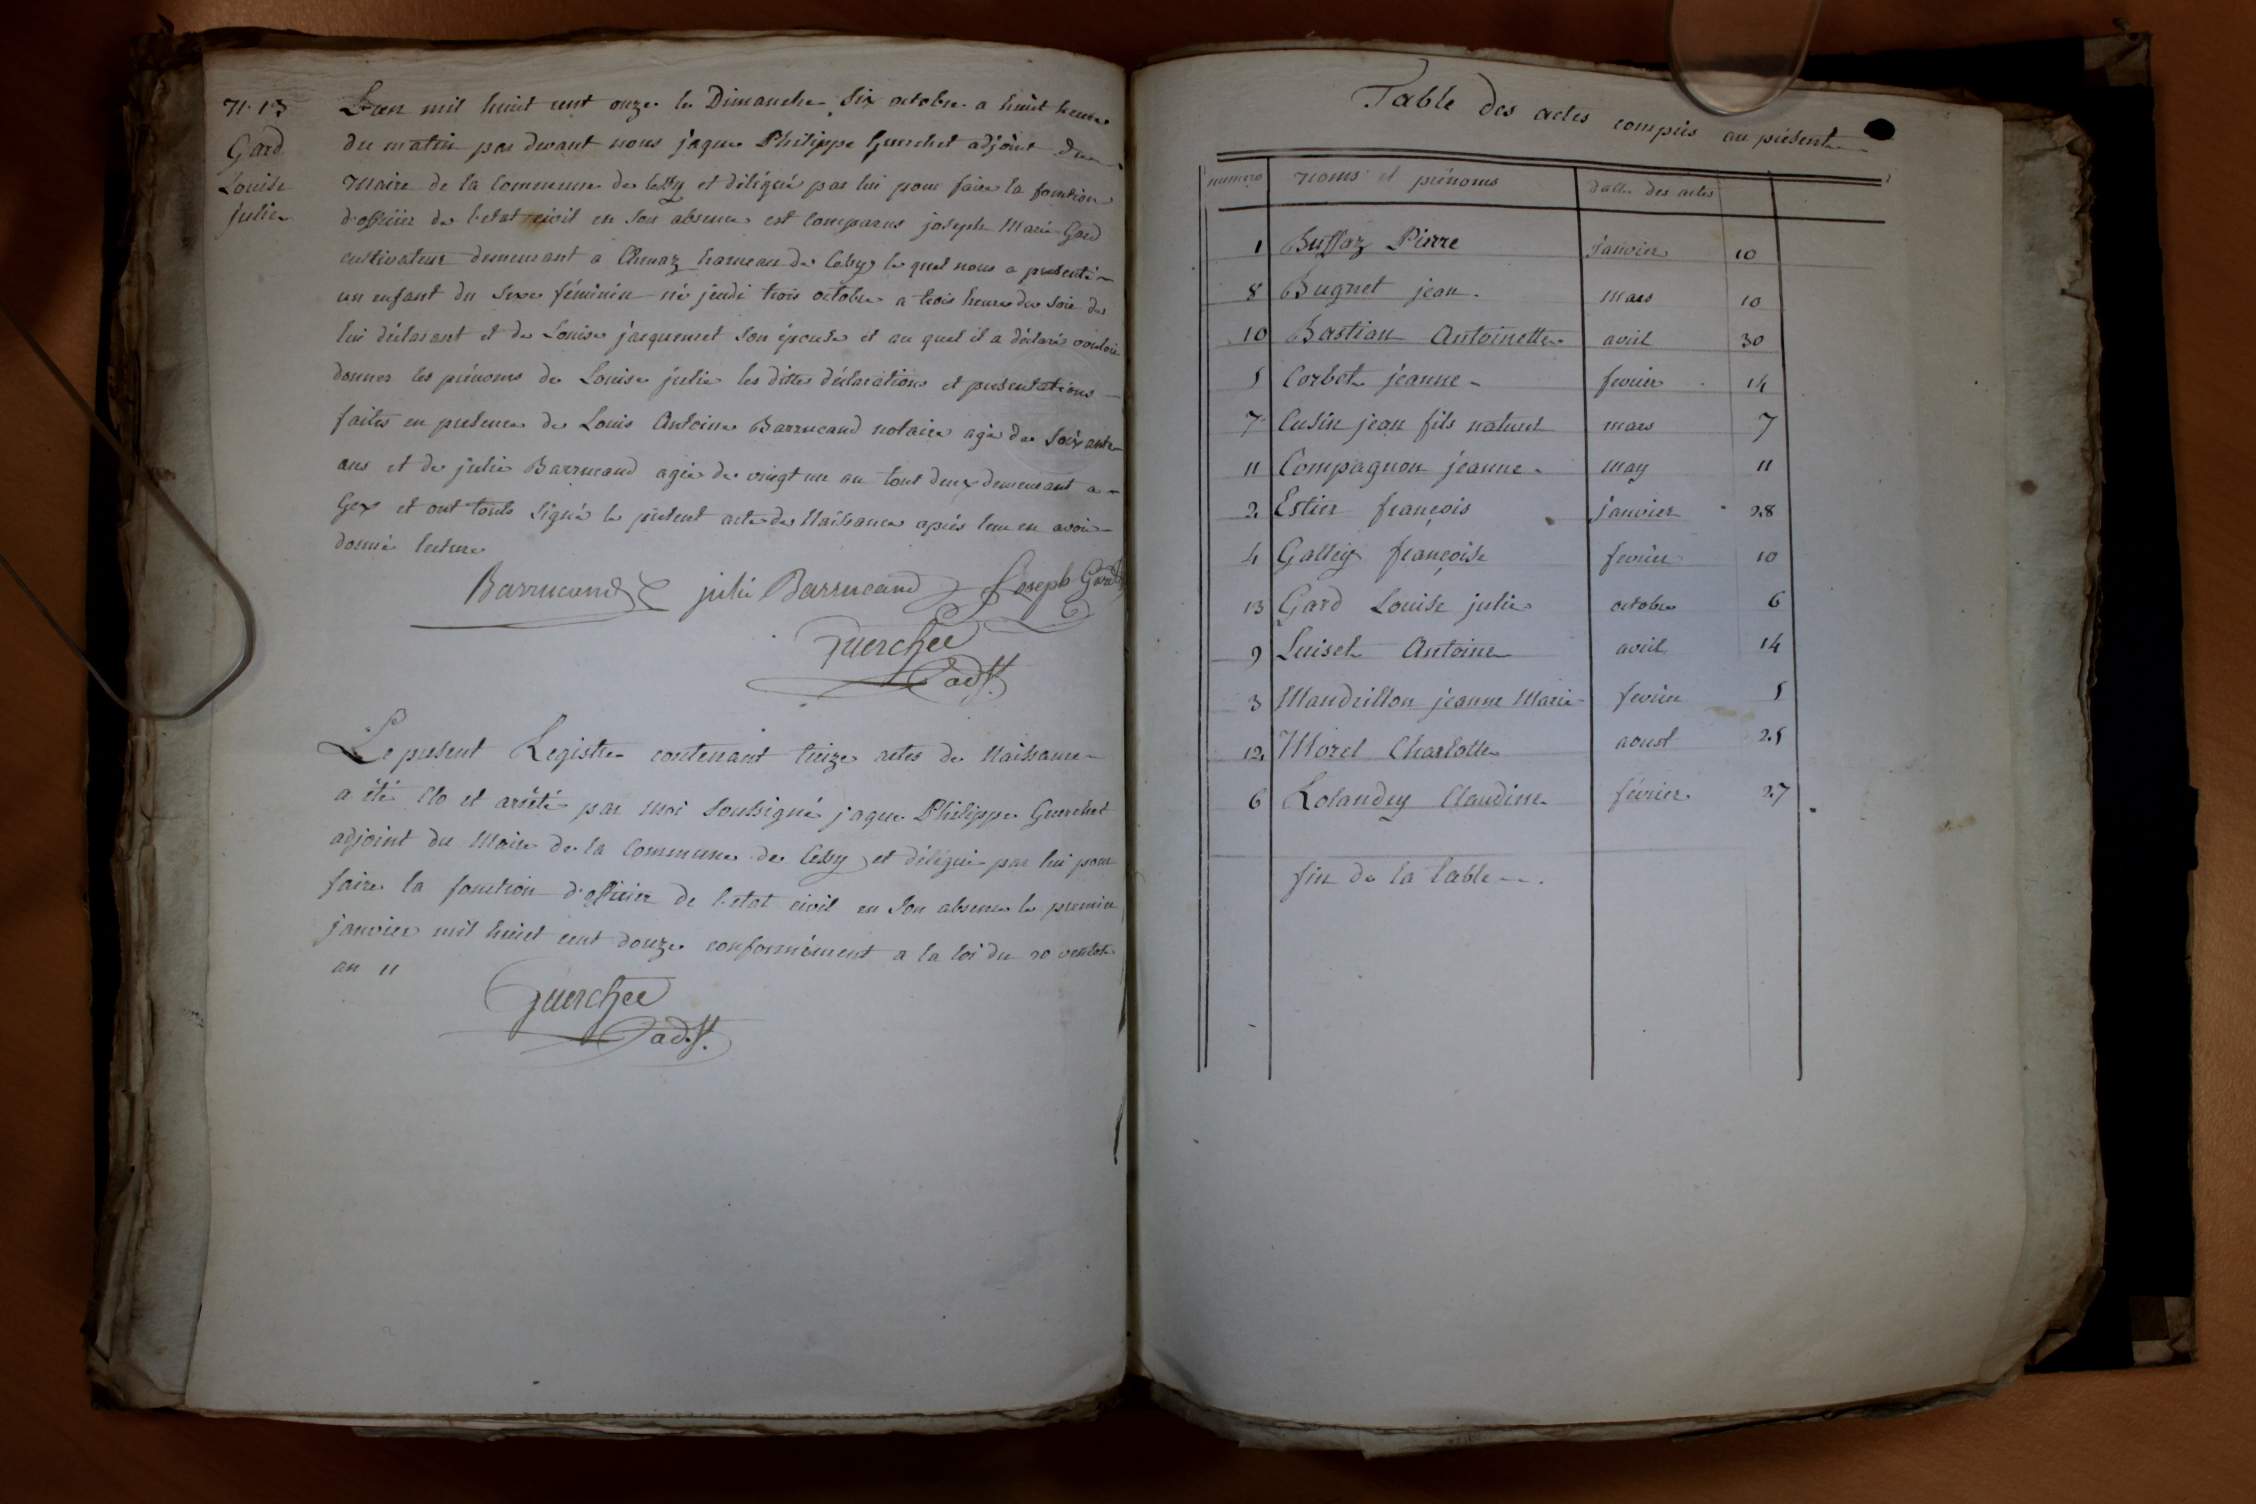 N. 13
Gard
Louise
julie
L'an mil huit cent onze le Dimanche six octobre a huit heure
du matin par devant nous jaque Philippe Guerchet adjoint du
Maire de la Commune de Cessy et délégué par lui pour faire la fonction
d'officier de l'etat civil en son absence est comparus joseph Marie Gard
cultivateur demeurant a hameau de Cessy le quel nous a presenté
un enfant du sexe féminin né jeudi trois octobre a trois heure du soir de
lui déclarant et de Louise jacquemet son épouse et au quel il a déclaré vouloir
donner les prénoms de Louise julie les dittes déclarations et presentations
faites en presence de Louis Antoine Barrucand notaire agé de soixante
ans et de julie Barrucand agée de vingt un an tout deux demeurant a
Gex et ont touts signé le présent acte de Naissance après leur en avoir
donné lecture
Barrucand julie Barrucand Joseph Gard
Guerchet
adjt.
Le present Registre contenant treize actes de Naissance
a été clo et arrêté par moi soussigné jaque Philippe Guerchet
adjoint du Maire de la Commune de Cessy et délégué par lui pour
faire la fonction d'officier de l'etat civil en son absence le premier
janvier mil huit cent douze conformément a la loi du 20 ventose
an 11
Guerchet
adjt.
Table des actes compris au présent
numero noms et prénoms datte des actes
1 Buffaz Pierre janvier 10
8 Bugnet jean. mars 10
10 Bastian Antoinette avril 30
5 Corbet jeanne fevrier 14
7 Cusin jean fils naturel mars 7
11 Compagnon jeanne may 11
2 Estier françois janvier 28
4 Galley françoise fevrier 10
13 Gard Louise julie octobre 6
9 Luiset Antoine avril 14
3 Mandrillon jeanne Marie fevrier 5
12 Morel Charlotte aoust 25
6 Rolandey Claudine février 27
fin de la table